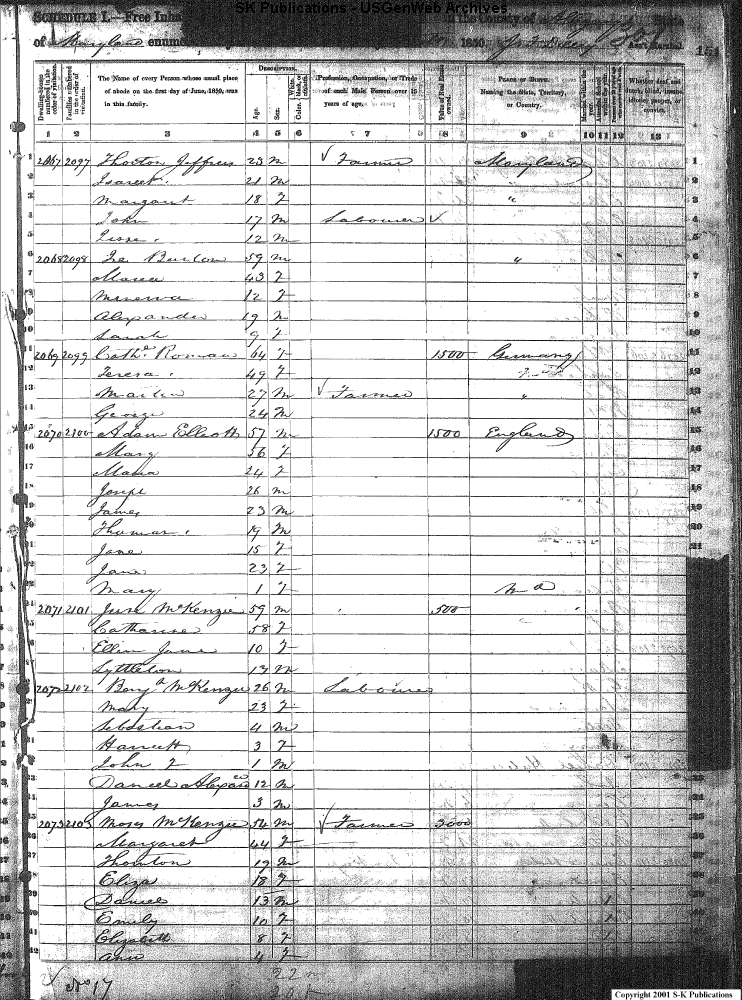 SK Publications - USGenWeb Archives
SCHEDULE I.—Free Inhabitants in the County of State
of Maryland enumerated 1850. Ass't Marshal. 151
Dwelling-houses numbered in the order of visitation.
Families numbered in the order of visitation.
The Name of every Person whose usual place of abode on the first day of June, 1850, was in this family.
DESCRIPTION.
Age.
Sex.
Color, White, black, or mulatto.
Profession, Occupation, or Trade of each Male Person over 15 years of age.
Value of Real Estate owned.
PLACE OF BIRTH. Naming the State, Territory, or Country.
Whether deaf and dumb, blind, insane, idiotic, pauper, or convict.
1 2 3 4 5 6 7 8 9 10 11 12 13
1 2067 2097 Thorton Jeffries 23 m Farmer Maryland 1
2 21 m 2
3 Margaret 18 f " 3
4 John 17 m Labourer 4
5 Jesse 12 m 5
6 2068 2098 59 m " 6
7 43 f 7
8 Minerva 12 f 8
9 Alexander 19 m
10 Sarah 9 f 10
11 2069 2099 Cath. Roman 64 f 1500 Germany 11
12 Teresa 49 f 12
13 27 m Farmer " 13
14 George 24 m 14
15 2070 2100 Adam Elliott 57 m 1500 England 15
16 Mary 56 f 16
17 Maria 24 f 17
18 Joseph 26 m 18
19 James 23 m 19
20 Thomas 19 m 20
21 Jane 15 f 21
Jane 23 f
Mary 1 f Md
2071 2101 McKenzie 59 m 500
Catharine 58 f
Ellen Jane 10 f
Lyttleton 13 m
2072 2102 Benj. McKenzie 26 m Labourer
Mary 23 f
Sebastian 4 m
Harriett 3 f
John F 1 m
Daniel 12 m
James 3 m
2073 2103 Moses McKenzie 54 m Farmer 3000
Margaret 44 f
Thornton 19 m
Eliza 18 f
Daniel 13 m 1
Emily 10 f 1
Elizabeth 8 f 1
Ann 4 f
No 17 22 m
20 f
Copyright 2001 S-K Publications